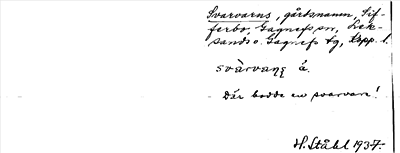 Svarvarns, gårdsnamn, Sif-
ferbo, Gagnefs sn, Lek-
sands o. Gagnefs tg, Kopp. l.
svàrvaṇṣ å.
Där bodde en svarvare!
H. Ståhl 1937.-